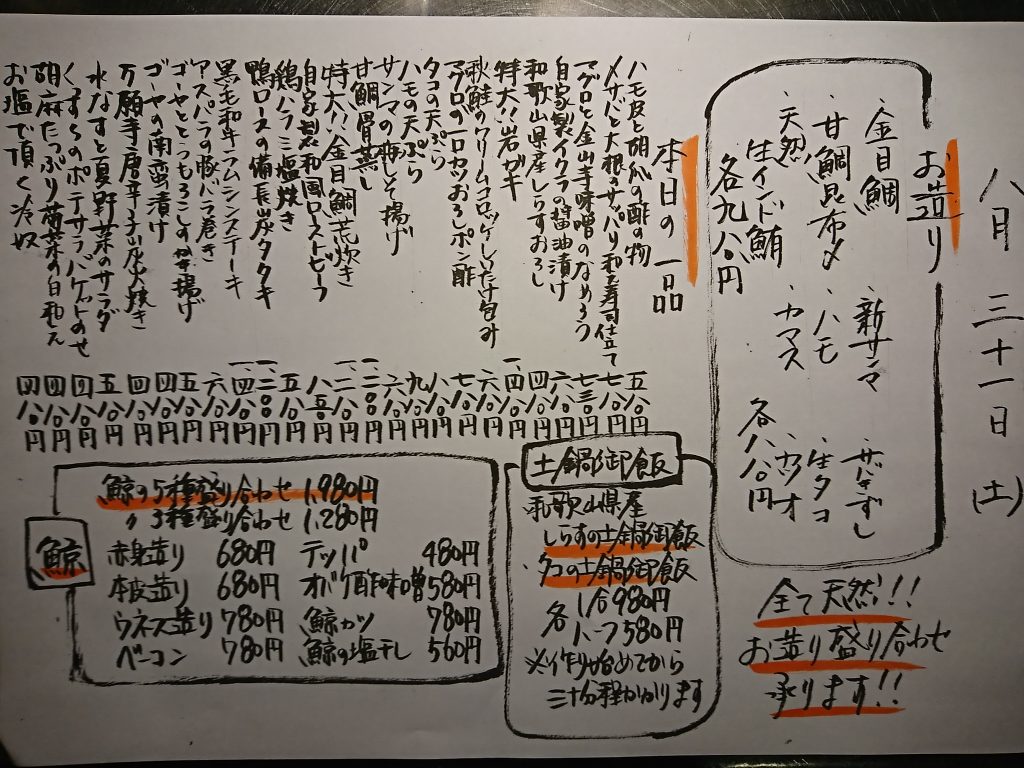 八月三十一日(土)
お造り
金目鯛
甘鯛昆布〆
天然
生インド鮪
各九八〇円
・新サンマ
・ハモ
・カマス
各八八〇円
・サバきずし
・生タコ
・カツオ
全て天然!!
お造り盛り合わせ
承ります!!
本日の一品
ハモ皮と胡瓜の酢の物 五八〇円
〆サバと大根のサッパリ和え寿司仕立て 七八〇円
マグロと金山寺味噌のなめろう 七三〇円
自家製イクラの醤油漬け 六八〇円
和歌山県産しらすおろし 四八〇円
特大!!岩ガキ 一、四八〇円
秋鮭のクリームコロッケしいたけ包み 六八〇円
マグロの一口カツおろしポン酢 七八〇円
タコの天ぷら 八八〇円
ハモの天ぷら 九八〇円
サンマの梅しそ揚げ 六八〇円
甘鯛骨蒸し 一、二八〇円
特大!!金目鯛荒炊き 一、二八〇円
自家製和国ローストビーフ 八五〇円
鶏ハラミ塩焼き 五八〇円
鴨ロースの備長炭タタキ 一、二〇〇円
黒毛和牛ラムシンステーキ 一、四八〇円
アスパラの豚バラ巻き 六八〇円
ゴーヤととうもろこしかき揚げ 五八〇円
ゴーヤの南蛮漬け 四八〇円
万願寺唐辛子炭火焼き 四八〇円
水なすと夏野菜のサラダ 五八〇円
くずらのポテサラバケットのせ 四八〇円
胡麻たっぷり菊菜の白和え 四八〇円
お塩で頂く冷奴 四八〇円
土鍋御飯
和歌山県産
しらすの土鍋御飯
・タコの土鍋御飯
各1合980円
各ハーフ580円
※作り始めてから
三十分程かかります
鯨
鯨の5種盛り合わせ 1,980円
〃 3種盛り合わせ 1,280円
赤身造り 680円 テッパ 480円
本皮造り 680円 オバケ酢味噌 580円
ウネス造り 780円 鯨カツ 780円
ベーコン 780円 鯨の塩干し 560円